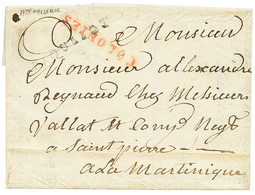 COLONIES
Monsieur
Monsieur allexandre
Reynaud Chez Messieurs
Vallat et Comp Negts
a Saint pierre
a La Martinique